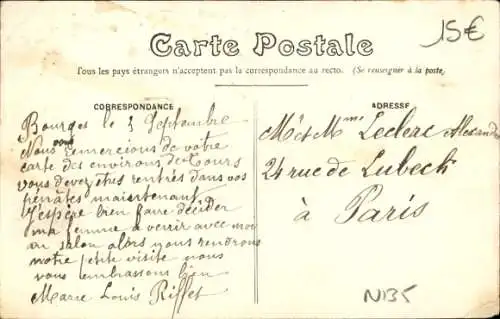 15€
Carte Postale
Tous les pays étrangers n'acceptent pas la correspondance au recto. (Se renseigner à la poste)
CORRESPONDANCE
Bourges le 3 Septembre
Nous vous remercions de votre
carte des environs de Tours
vous devez êtres rentrés dans vos
pénates maintenant
J'espère bien faire décider
ma femme a venir avec moi
au salon alors nous rendrons
notre petite visite nous
vous embrassons bien
Marie Louis Riffet
ADRESSE
Mr et Mme Leclerc Alexandre
24 rue de Lubeck
à Paris